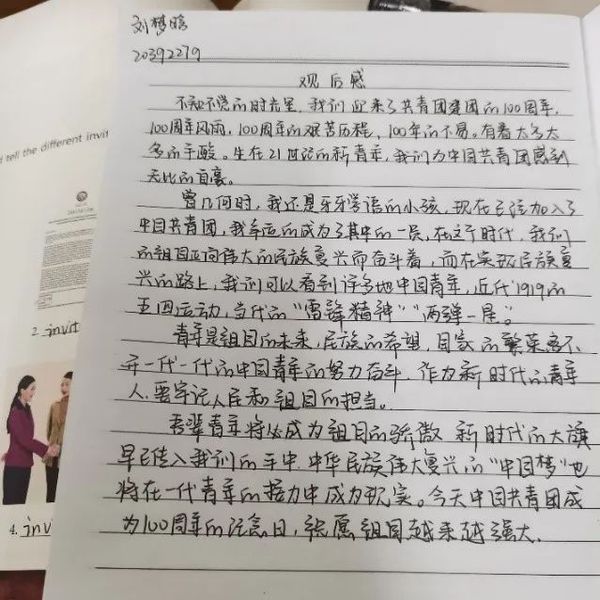 刘梦晗
20392279
观后感
不知不觉的时光里，我们迎来了共青团建团的100周年，
100周年风雨，100周年的艰苦历程，100年的不易。有着太多太
多的辛酸。生在21世纪的新青年，我们为中国共青团感到
无比的自豪。
曾几何时，我还是牙牙学语的小孩，现在已经加入了
中国共青团，我幸运的成为了其中的一员，在这个时代，我们
的祖国正向伟大的民族复兴而奋斗着，而在实现民族复
兴的路上，我们可以看到许多地中国青年，近代1919的
五四运动，当代的“雷锋精神”“两弹一星”。
青年是祖国的未来，民族的希望，国家的繁荣离不
开一代一代的中国青年的努力奋斗，作为新时代的青年
人，要牢记人民和祖国的担当。
吾辈青年将必成为祖国的骄傲 新时代的大旗
早已传入我们的手中，中华民族伟大复兴的“中国梦”也
将在一代青年的接力中成为现实。今天中国共青团成
为100周年的纪念日，祝愿祖国越来越强大.
d tell the different invit
2. invit
4. inv